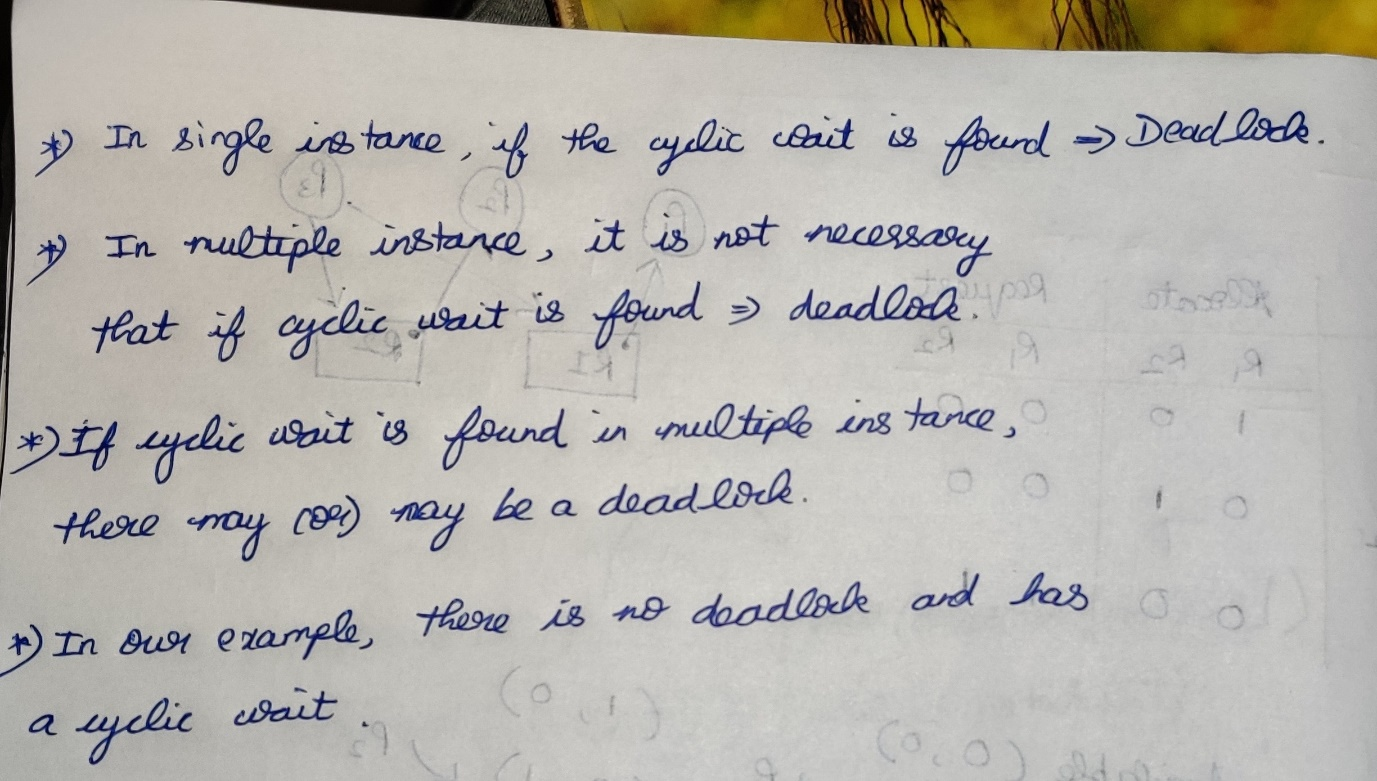 *) In single instance, if the cyclic wait is found => Deadlock.
*) In multiple instance, it is not necessary
that if cyclic wait is found => deadlock.
*) If cyclic wait is found in multiple instance,
there may (or) may be a deadlock.
*) In our example, there is no deadlock and has
a cyclic wait.